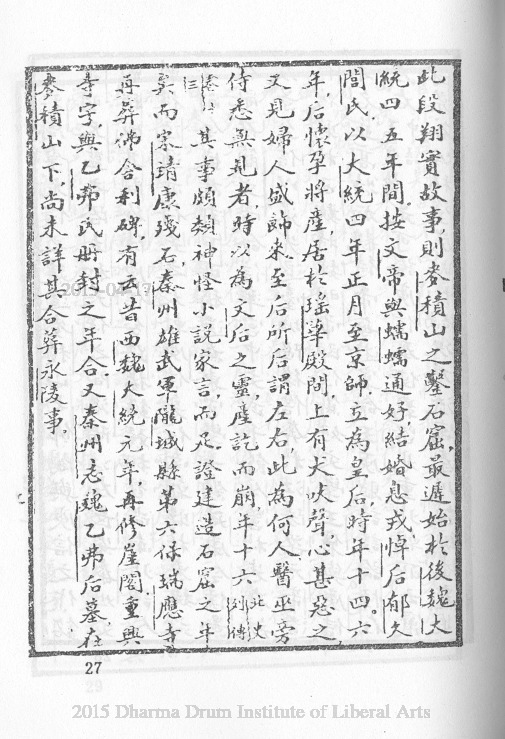 此段翔實故事，則麥積山之鑿石窟，最遲始於後魏大
統四五年間。按文帝與蠕蠕通好，結婚息戎，悼后郁久
閭氏，以大統四年正月至京師，立為皇后，時年十四。六
年，后懷孕將產，居於瑤華殿，聞上有犬吠聲，心甚惡之，
又見婦人盛飾來至后所，后謂左右，此為何人，醫巫旁
侍，悉無見者，時以為文后之靈，產訖而崩，年十六北史列傳
卷十三其事頗類神怪小說家言，而足證建造石窟之年
矣。而宋靖康殘石，秦州雄武軍隴城縣第六保瑞應寺
再葬佛舍利碑，有云昔西魏大統元年，再修崖閣，重興
寺字，與乙弗氏冊封之年合。又秦州志魏乙弗后墓，在
麥積山下，尚未詳其合葬永陵事。
27
2015 Dharma Drum Institute of Liberal Arts